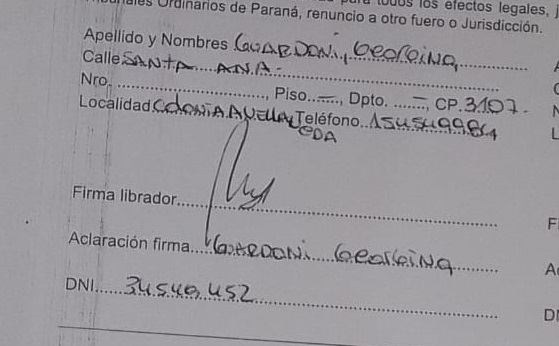 para todos los efectos legales,
Ordinarios de Paraná, renuncio a otro fuero o Jurisdicción.
Apellido y Nombres GUARDONI, GEORGINA
Calle SANTA ANA
Nro. ...................., Piso..—..., Dpto. ...—, CP. 3107.
Localidad COLONIA AVELLANEDA Teléfono..154549984
Firma librador....................
Aclaración firma..... GUARDONI GEORGINA
DNI...... 34.540.452